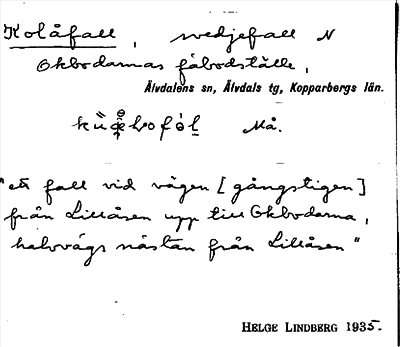 Kolåfall, svedjefall N
Okbodarnas fäbodställe,
Älvdalens sn, Älvdals tg, Kopparbergs län.
Må.
"ett fall vid vägen [gångstigen]
från Lillåsen upp till Okbodarna,
halvvägs nästan från Lillåsen"
HELGE LINDBERG 1935.